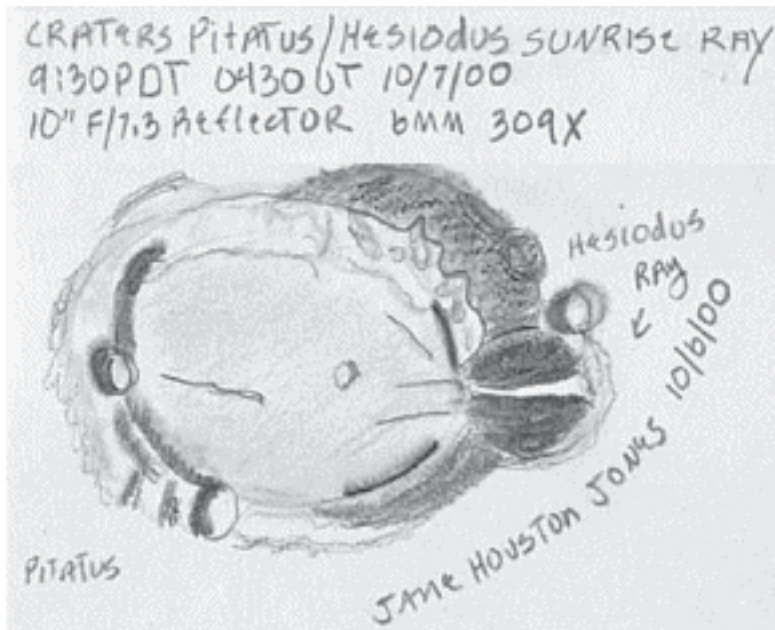 CRATERS PITATUS/HESIODUS SUNRISE RAY
9:30PDT 0430UT 10/7/00
10" F/7.3 REFLECTOR 6MM 309X
HESIODUS
RAY
JANE HOUSTON JONES 10/6/00
PITATUS